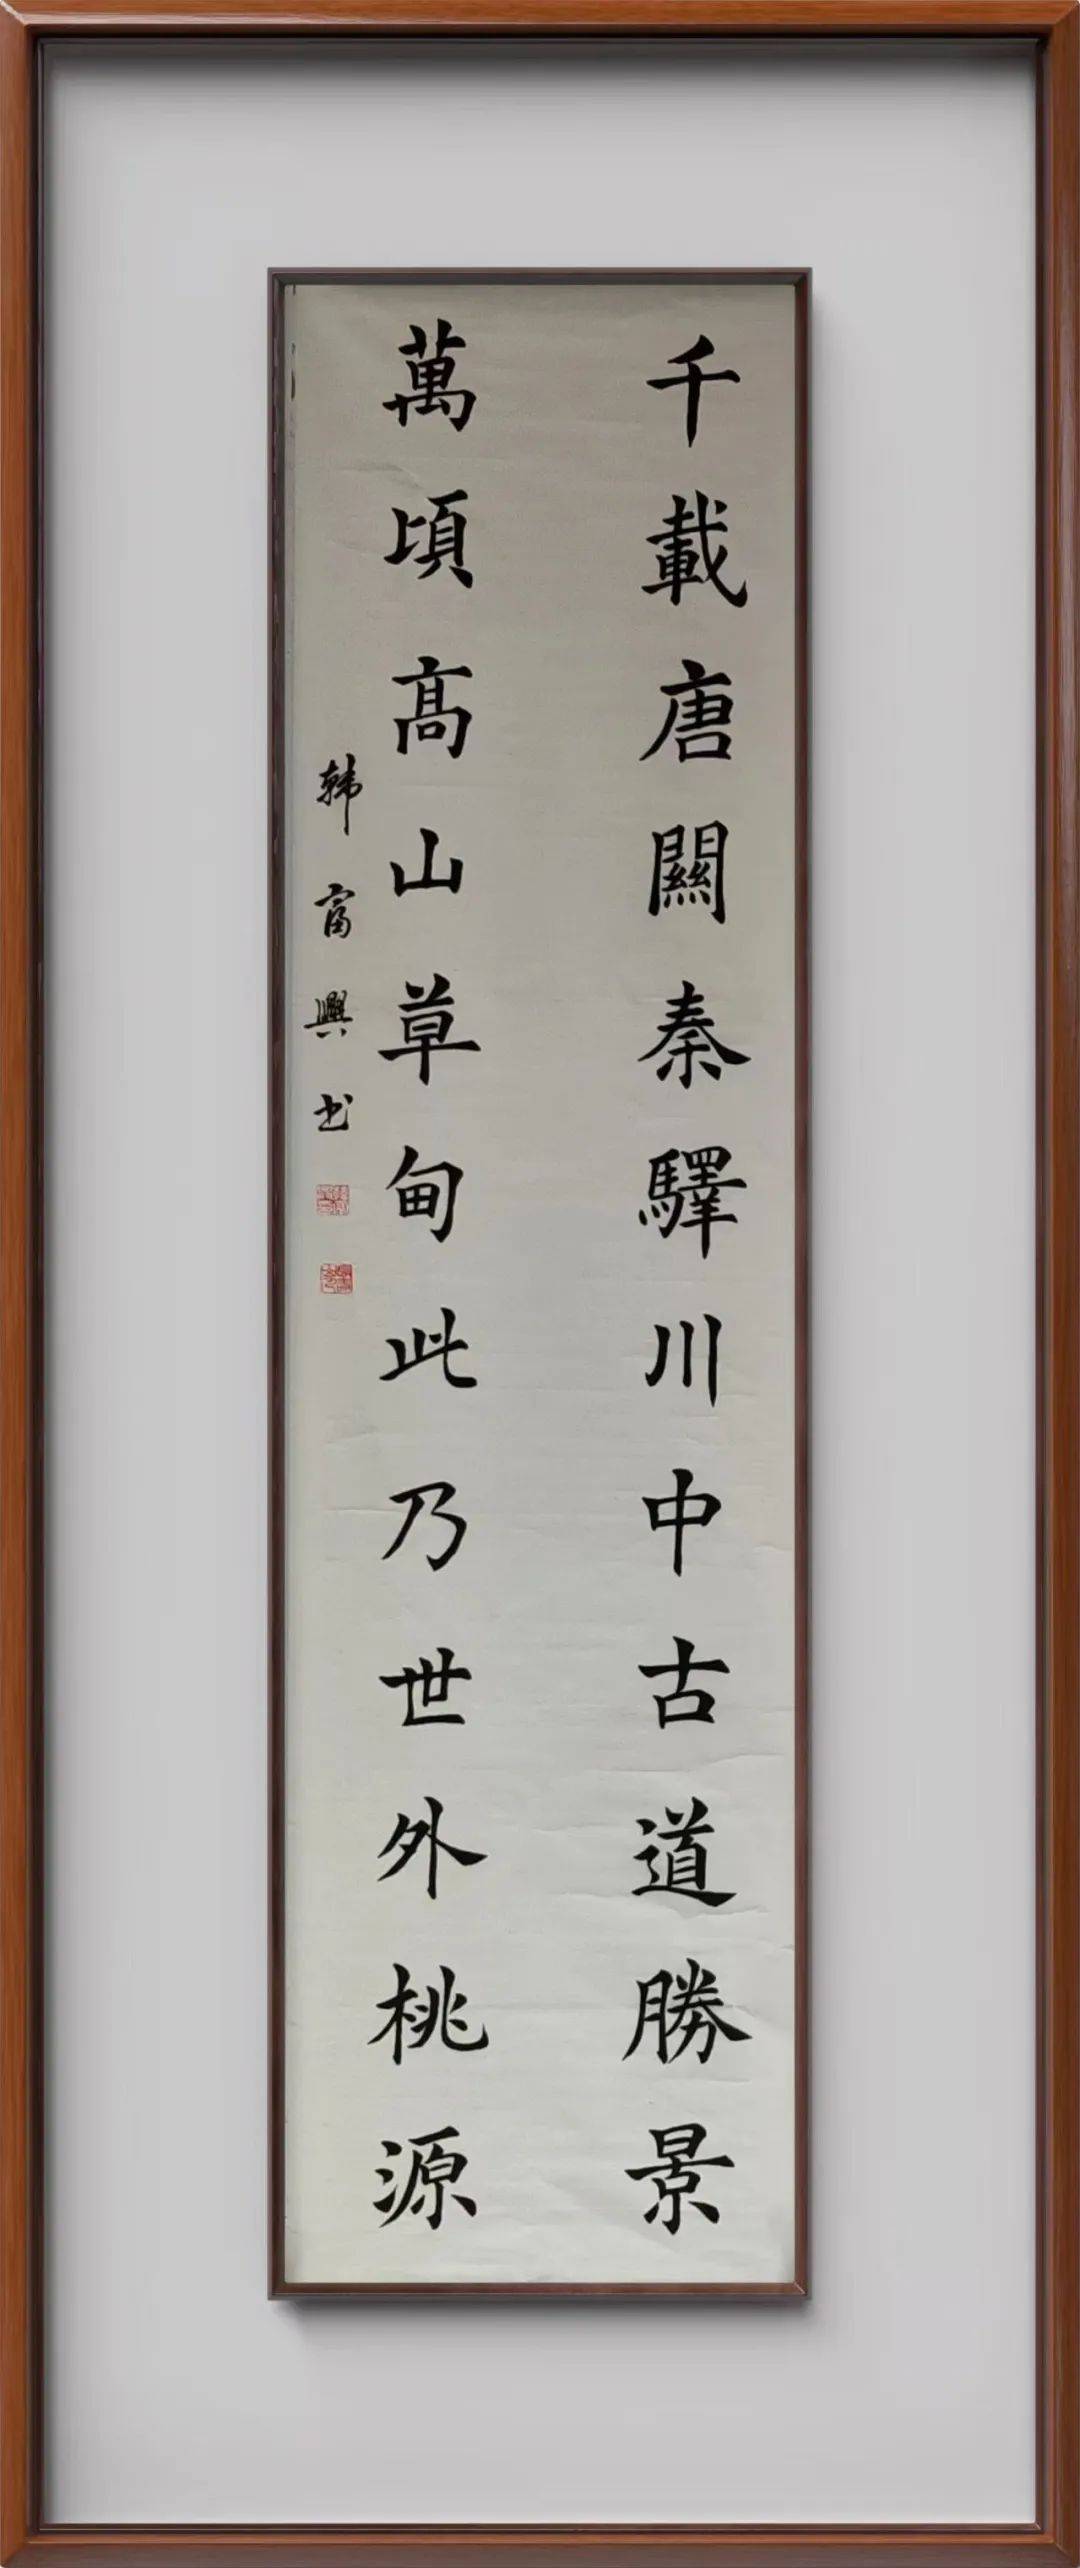 千載唐關秦驛川中古道勝景
萬頃高山草甸此乃世外桃源
韩富興书